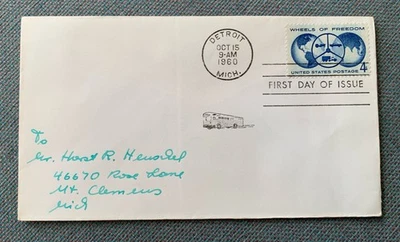 DETROIT
OCT 15
9-AM
1960
MICH.
WHEELS OF FREEDOM
UNITED STATES POSTAGE 4¢
FIRST DAY OF ISSUE
To
Mr. Horst R. Henschel
46670 Rose Lane
Mt. Clemens
Mich